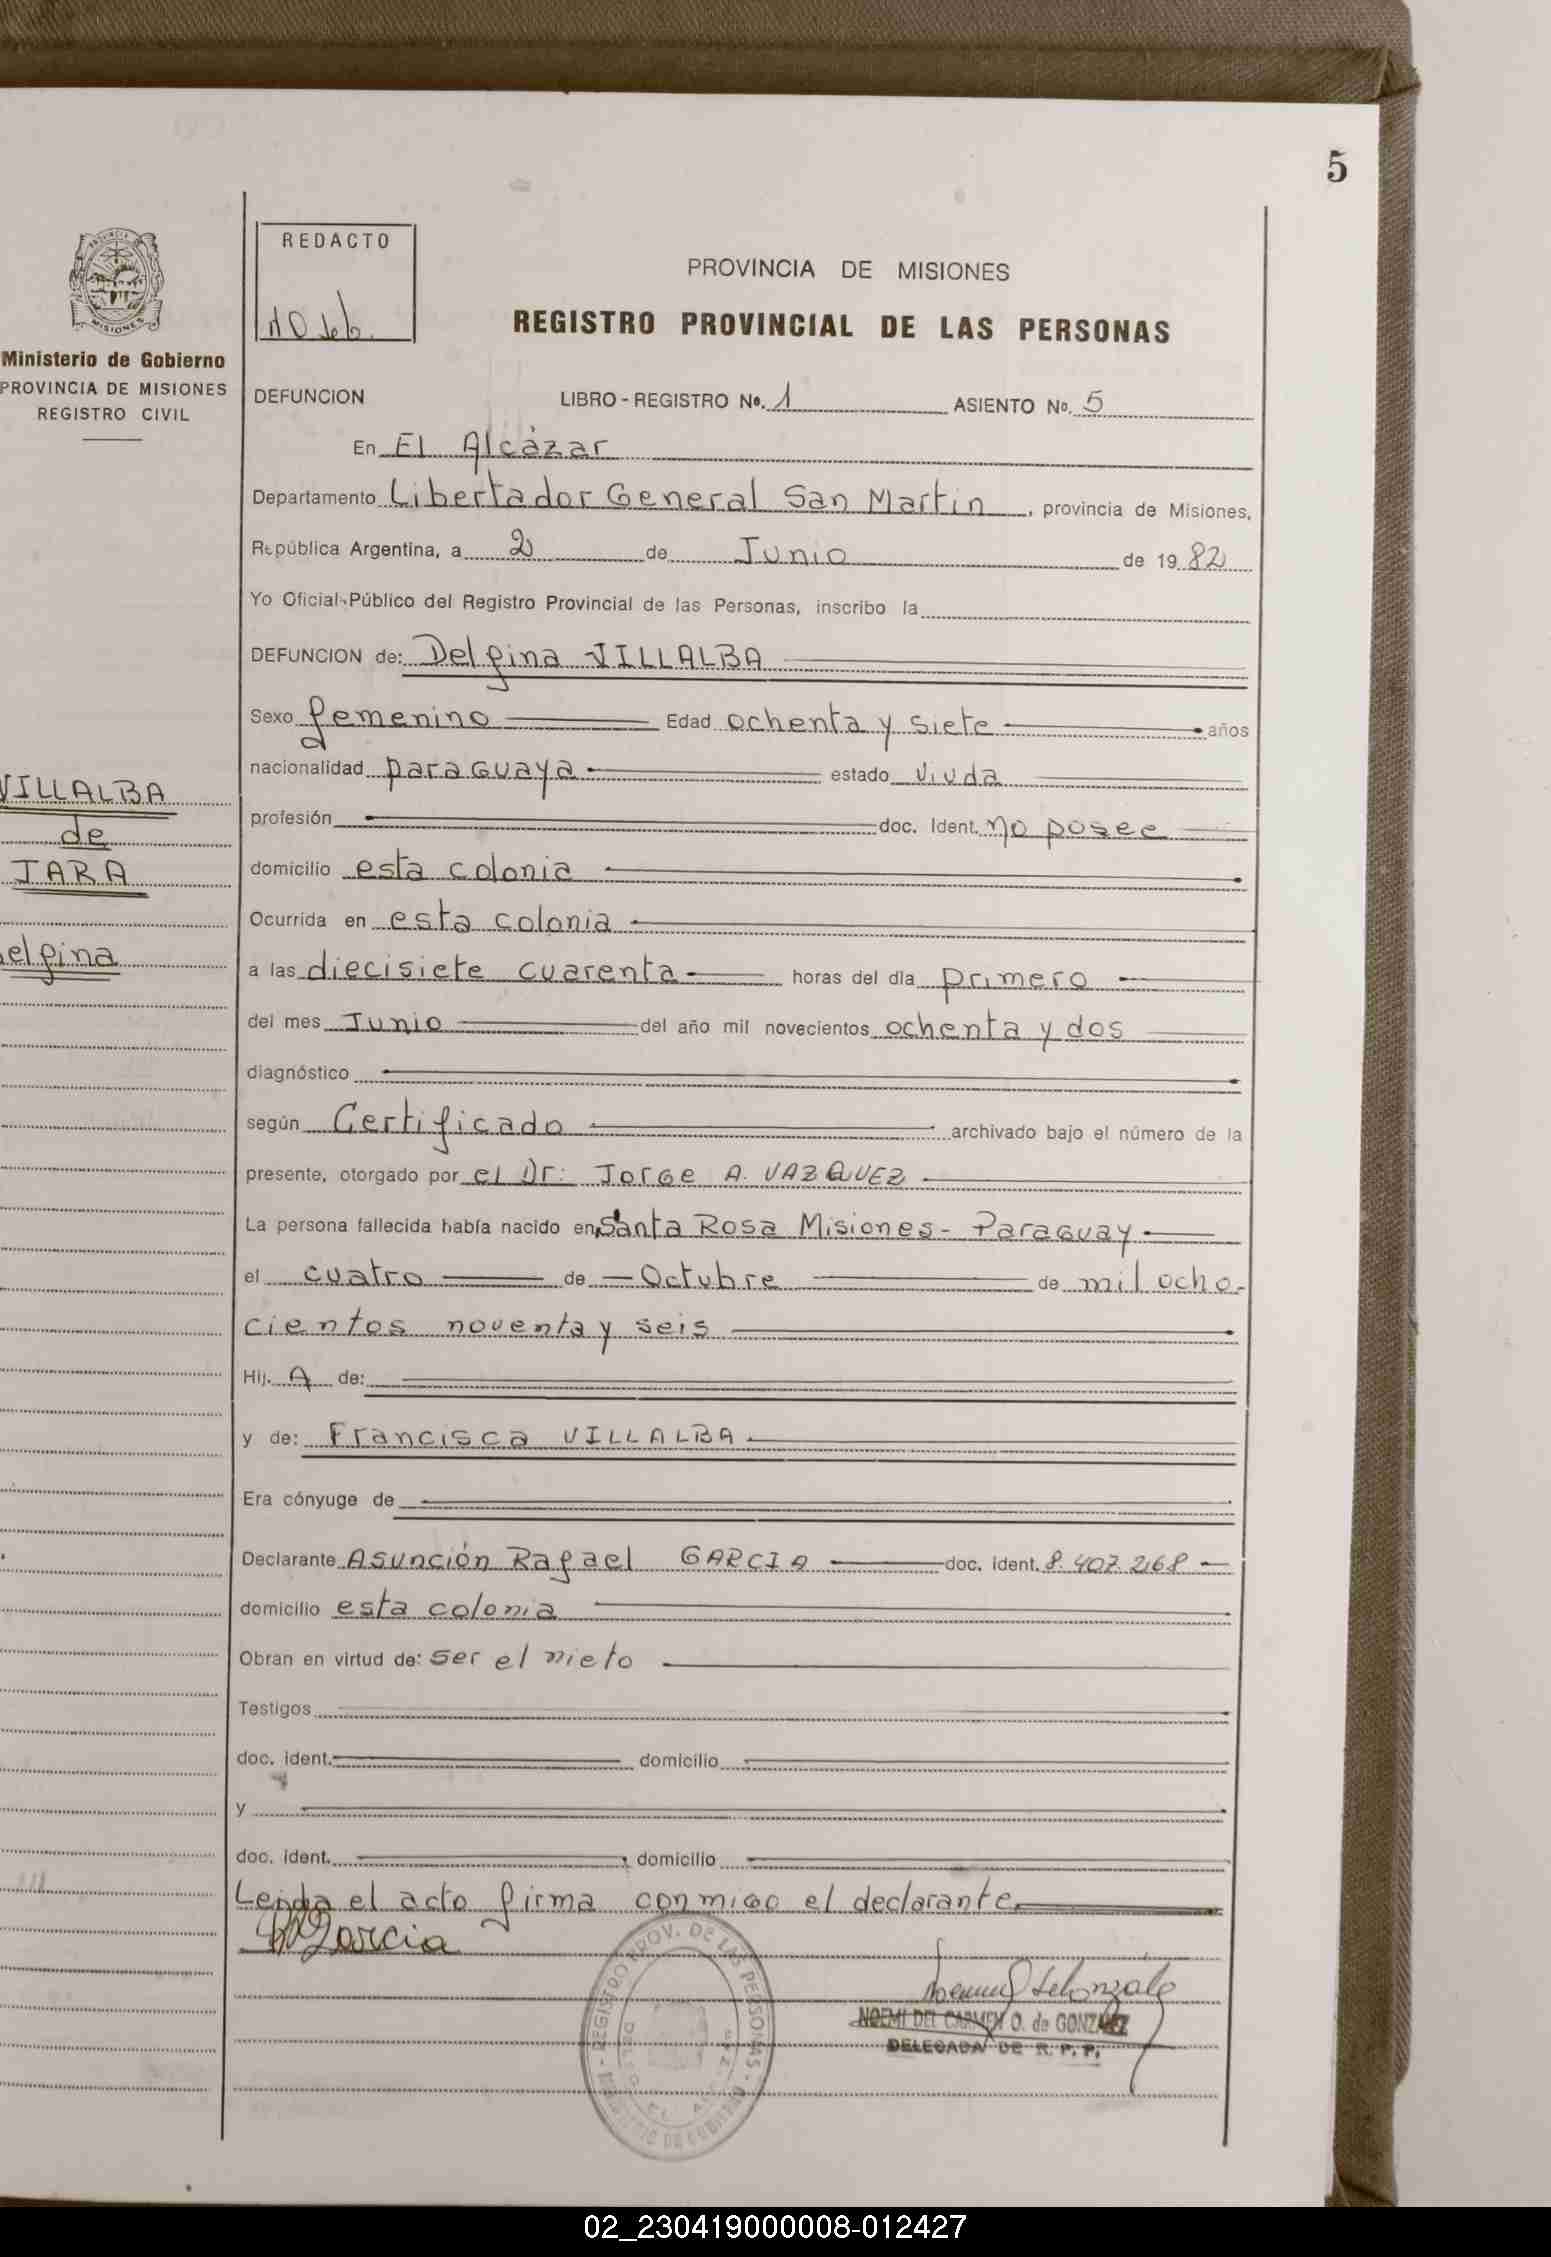 5
REDACTO
PROVINCIA DE MISIONES
REGISTRO PROVINCIAL DE LAS PERSONAS
MISIONES
Ministerio de Gobierno
PROVINCIA DE MISIONES
REGISTRO CIVIL
DEFUNCION LIBRO - REGISTRO Nº. 1 ASIENTO Nº. 5
En El Alcázar
Departamento Libertador General San Martin, provincia de Misiones,
República Argentina, a 2 de Junio de 1982
Yo Oficial Público del Registro Provincial de las Personas, inscribo la
DEFUNCION de: Delfina VILLALBA
Sexo femenino Edad ochenta y siete años
nacionalidad paraguaya estado viuda
VILLALBA
de
JARA
elfina
profesión doc. Ident. no posee
domicilio esta colonia
Ocurrida en esta colonia
a las diecisiete cuarenta horas del día primero
del mes Junio del año mil novecientos ochenta y dos
diagnóstico
según Certificado archivado bajo el número de la
presente, otorgado por el Dr: Jorge A. VAZQUEZ
La persona fallecida había nacido en Santa Rosa Misiones - Paraguay
el cuatro de Octubre de mil ocho-
cientos noventa y seis
Hij. A de:
y de: Francisca VILLALBA
Era cónyuge de
Declarante Asunción Rafael GARCIA doc. ident. 8.407.268
domicilio esta colonia
Obran en virtud de: ser el nieto
Testigos
doc. ident. domicilio
y
doc. ident. domicilio
Leida el acto firma conmigo el declarante
Garcia
REGISTRO PROV. DE LAS PERSONAS
NOEMI DEL CARMEN O. de GONZALEZ
DELEGADA DE R. P. P.
02_230419000008-012427